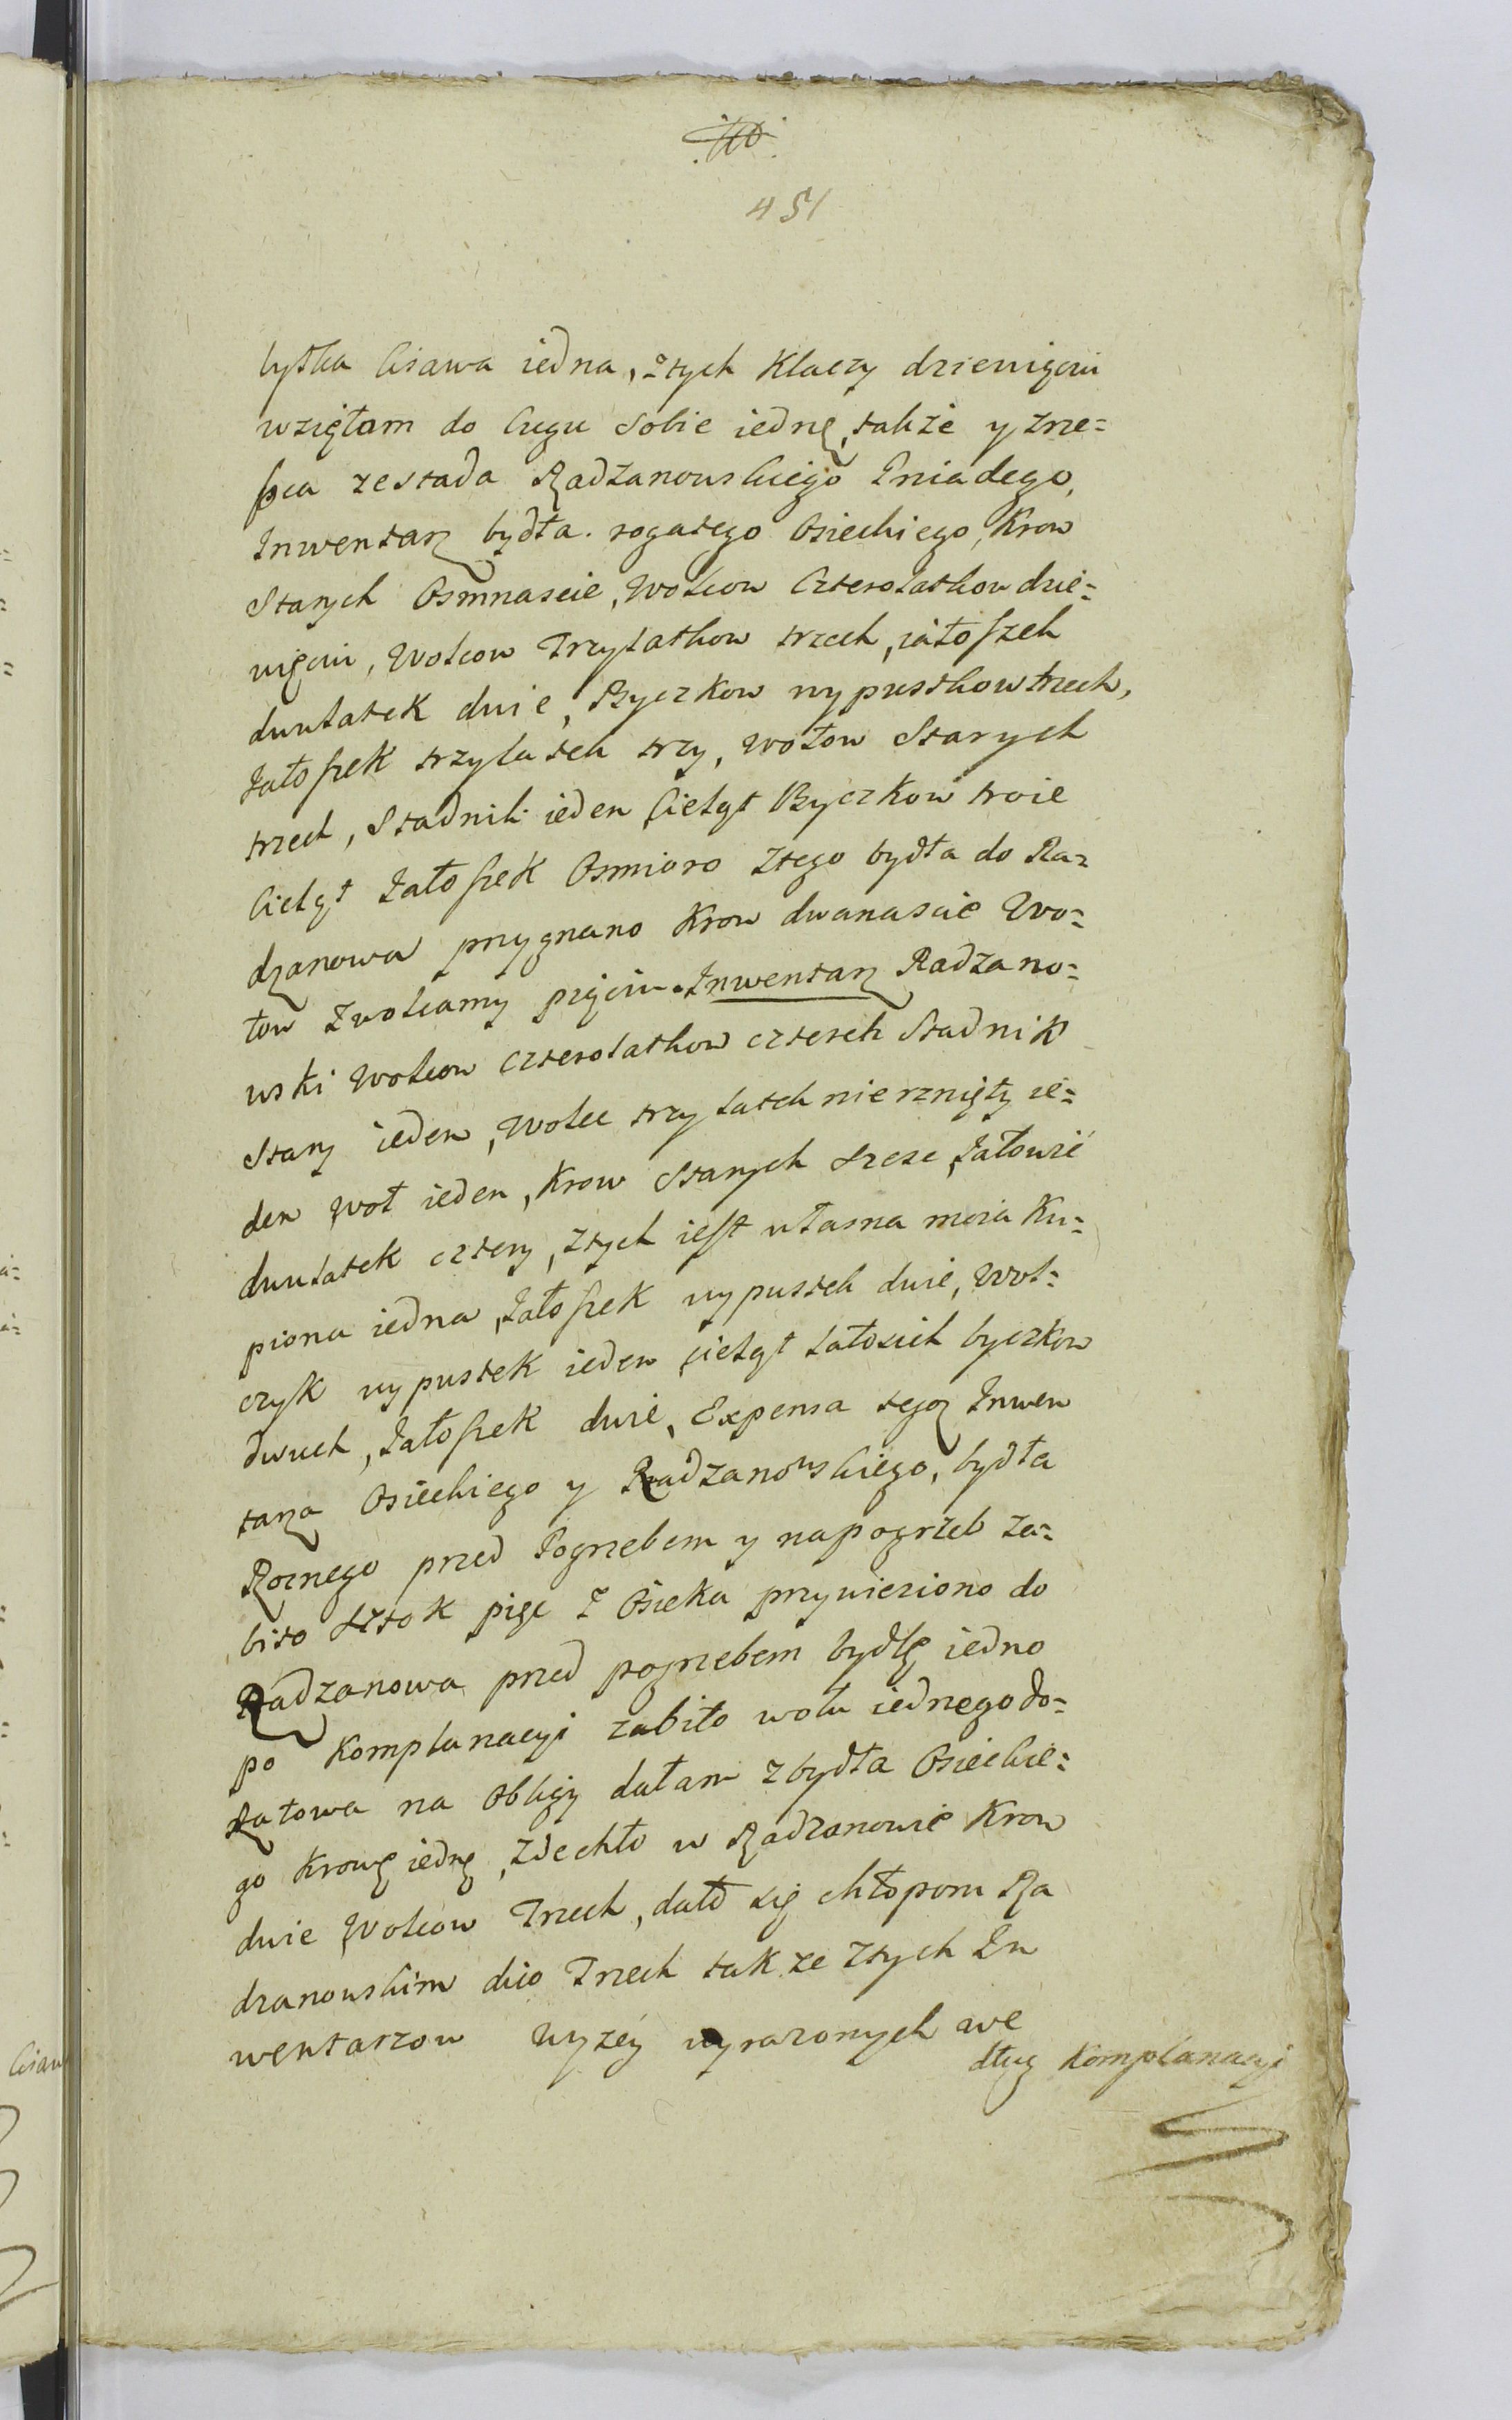 451
łyska Cisawa iedna, ztych Klaczy dziewięciu
wzięłam do Cugu Sobie iednę, także y zrze=
pca zestada Radzanowskiego Gniadego,
Inwentarz bydła rogatego Osieckiego, Krow
Starych Osmnascie, Wolcow Czterolatkow dzie=
więciu, Wolcow Trzylatkow trzech, iałoszek
dwulatek dwie, Byczkow wypustkow trzech,
Jałoszek trzylatek trzy, Wołow Starych
trzech, Stadnik ieden Cieląt Byczkow troie
Cieląt Jałoszek Osmioro Ztego bydła do Ra=
dzanowa przygnano Krow dwanascie Wo=
łow Zwolcamy pięciu. Inwentarz Radzano=
wski Wolcow czterolatkow czterech Stadnik
Stary ieden, Wolec trzylatek nierznięty ie=
den Woł ieden, Krow Starych szesc, Jałowic
dwulatek cztery, Ztych iest własna moia Ku=
piona iedna, Jałoszek wypustek dwie, Wol=
czyk wypustek ieden cieląt latosich byczkow
dwuch, Jałoszek dwie, Expensa tegoz Inwen
tarza Osieckiego y Radzanowskiego, bydła
Roznego przed Pogrzebem y napogrzeb za=
bito sztok pięc Z Osieka przywieziono do
Radzanowa przed pogrzebem bydlę iedno
po Komplanacyi zabito wołu iednego do=
Ratowa na Obligi dałam z bydła Osieckie=
go Krowę iednę, Zdechło w Radzanowie Krow
dwie Wolcow Trzech, dało się chłopom Ra
dzanowskim dwo Trzech takze Ztych In
wentarzow wyzey wyrazonych we
dług Komplanacyi
Cisaw